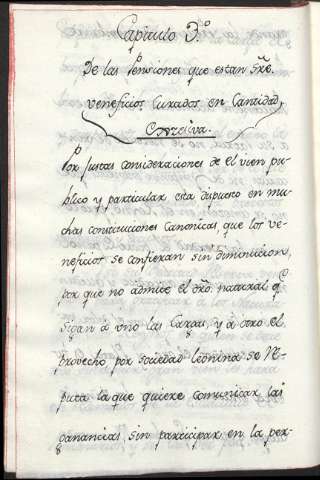 Capitulo 3.º
De las Pensiones que estan Sre.
veneficios Curados en Cantidad,
Cresciva.
Por Justas consideraciones de el vien pu-
blico y particular esta dispuesto en mu-
chas constituciones Canonicas, que los ve-
neficios se confieran sin diminucion,
por que no admite el dro. natural q.e
sigan à vno las Cargas, y à otro el
provecho por sociedad leonina se Re-
puta la que quiere comunicar las
ganancias, sin participar en la per-